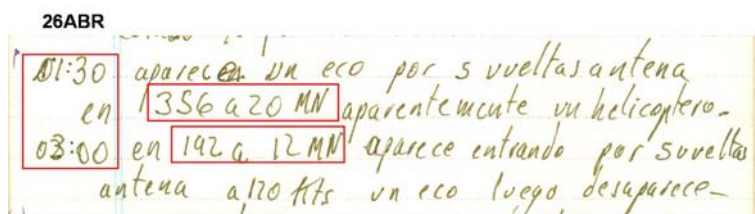 26ABR
01:30 aparece un eco por 5 vueltas antena
en 356 a 20 MN aparentemente un helicoptero.
03:00 en 192 a 12 MN aparece entrando por 5 vueltas
antena a 120 Kts un eco luego desaparece-